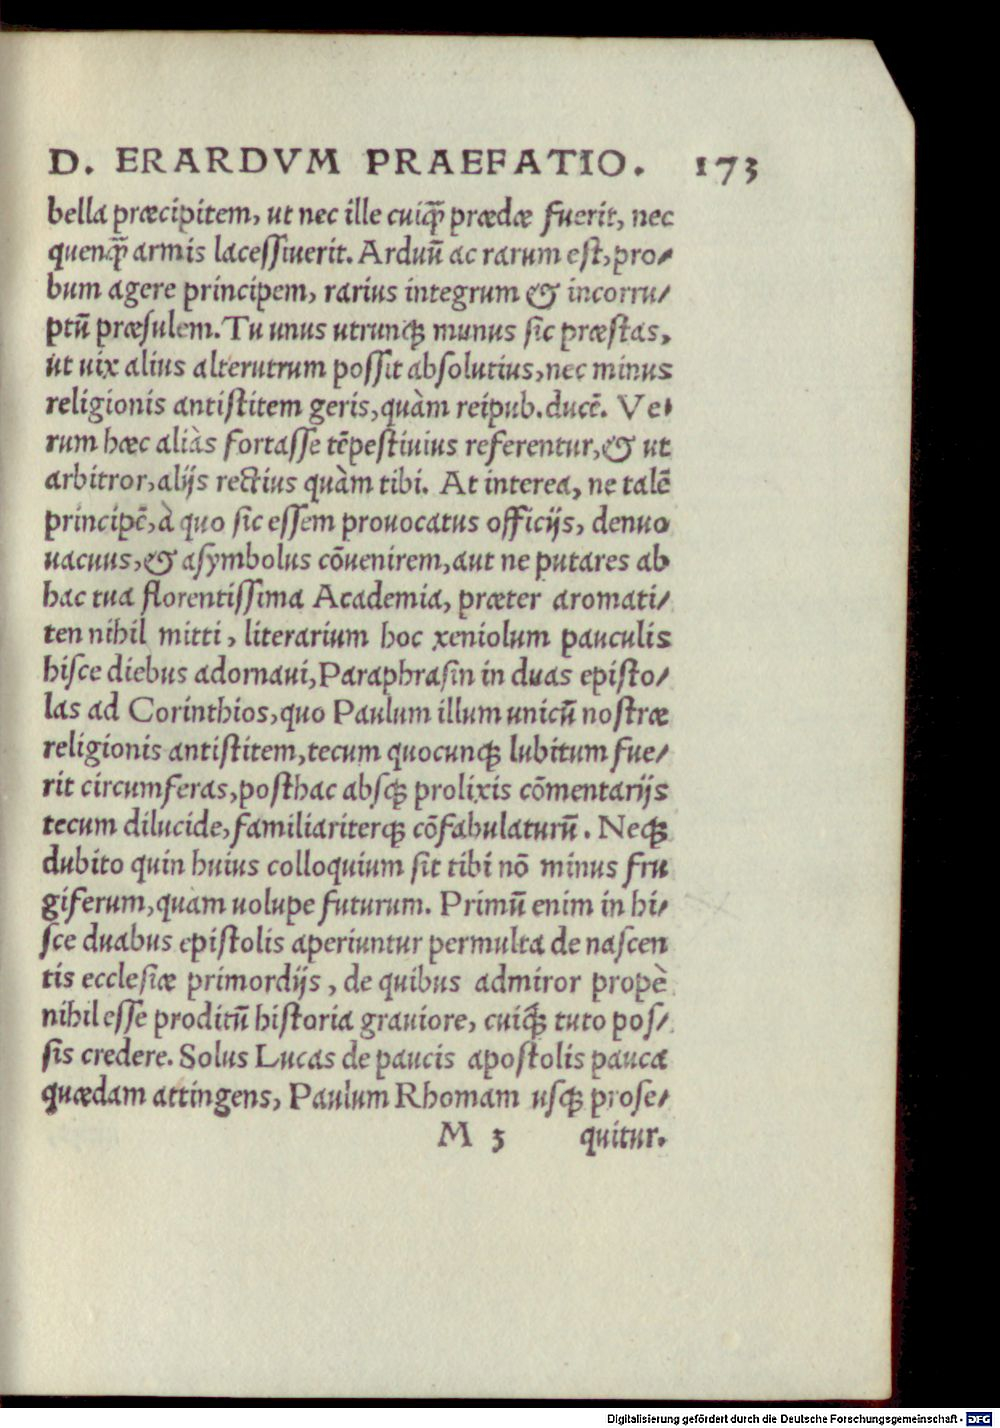 D. ERARDVM PRAEFATIO. 173
bella præcipitem, ut nec ille cuiq̃ prædæ fuerit, nec
quenq̃ armis lacessiuerit. Arduũ ac rarum est, pro-
bum agere principem, rarius integrum & incorru-
ptũ præsulem. Tu unus utrunq; munus sic præstas,
ut uix alius alterutrum possit absolutius, nec minus
religionis antistitem geris, quàm reipub. ducẽ. Ve-
rum hæc aliàs fortasse tẽpestiuius referentur, & ut
arbitror, alijs rectius quàm tibi. At interea, ne talẽ
principẽ, à quo sic essem prouocatus officijs, denuo
uacuus, & asymbolus cõuenirem, aut ne putares ab
hac tua florentissima Academia, præter aromati-
ten nihil mitti, literarium hoc xeniolum pauculis
hisce diebus adornaui, Paraphrasin in duas episto-
las ad Corinthios, quo Paulum illum unicũ nostræ
religionis antistitem, tecum quocunq; lubitum fue-
rit circumferas, posthac absq; prolixis cõmentarijs
tecum dilucide, familiariterq; cõfabulaturũ. Neq;
dubito quin huius colloquium sit tibi nõ minus fru
giferum, quàm uolupe futurum. Primũ enim in hi-
sce duabus epistolis aperiuntur permulta de nascen
tis ecclesiæ primordijs, de quibus admiror propè
nihil esse proditũ historia grauiore, cuiq̃; tuto pos-
sis credere. Solus Lucas de paucis apostolis pauca
quædam attingens, Paulum Rhomam usq; prose-
M 3 quitur.
Digitalisierung gefördert durch die Deutsche Forschungsgemeinschaft - DFG